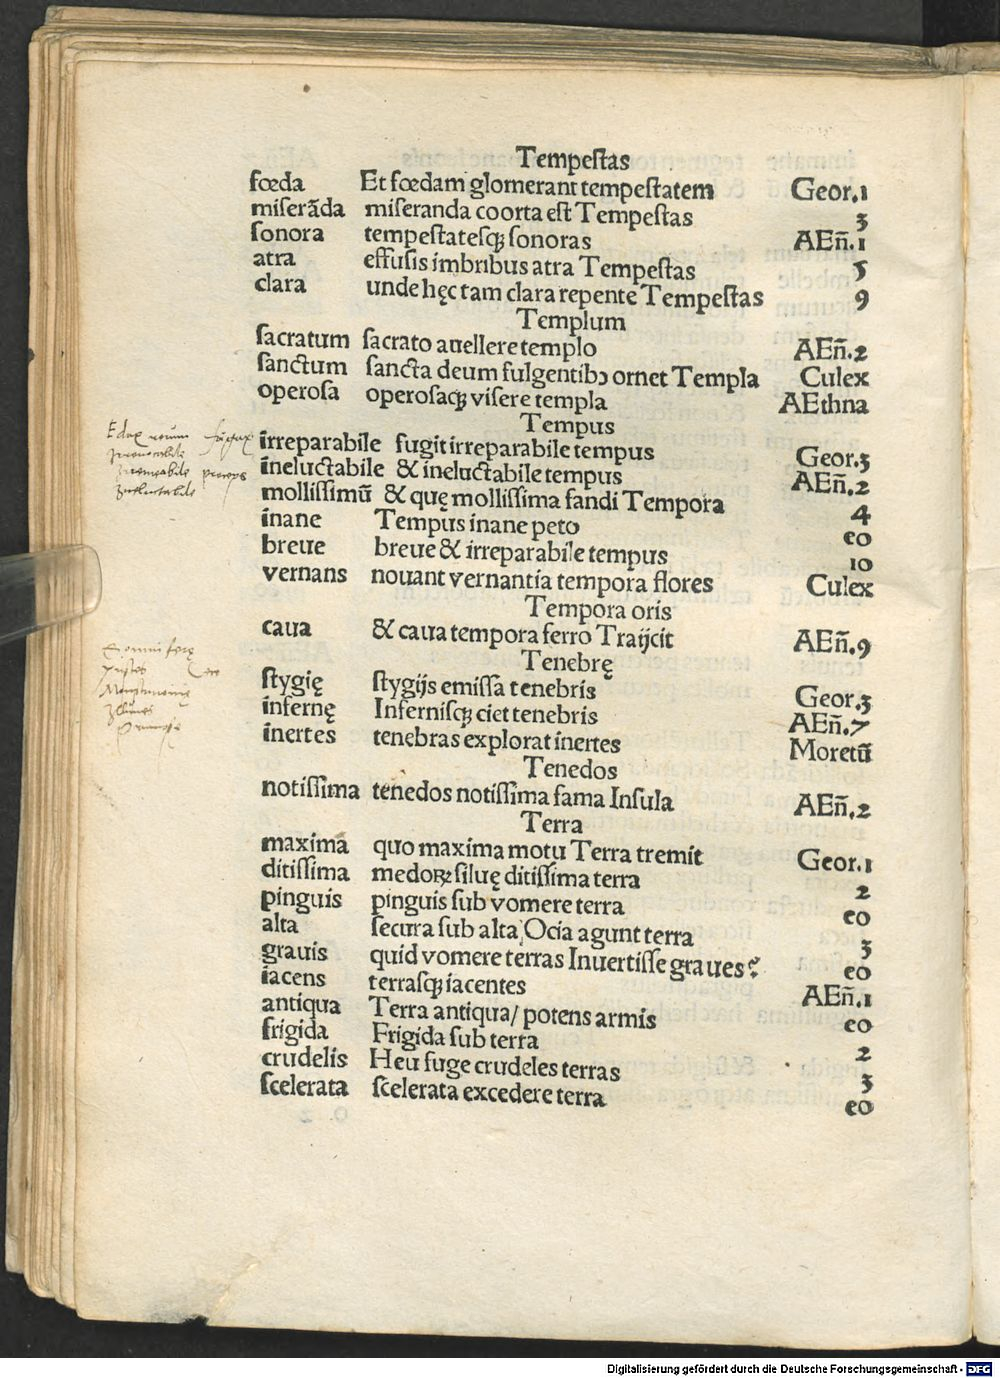 Tempestas
fœda Et fœdam glomerant tempestatem Geor.1
miserãda miseranda coorta est Tempestas 3
sonora tempestatesqꝫ sonoras AEñ.1
atra effusis imbribus atra Tempestas 5
clara unde hęc tam clara repente Tempestas 9
Templum
sacratum sacrato auellere templo AEñ.2
sanctum sancta deum fulgentibꝰ ornet Templa Culex
operosa operosaqꝫ visere templa AEthna
Tempus
irreparabile fugit irreparabile tempus Geor.3
ineluctabile & ineluctabile tempus AEñ.2
mollissimũ & quę mollissima fandi Tempora 4
inane Tempus inane peto eo
breue breue & irreparabile tempus 10
vernans nouant vernantia tempora flores Culex
Tempora oris
caua & caua tempora ferro Traijcit AEñ.9
Tenebrę
stygię stygijs emissa tenebris Geor.3
infernę Infernisqꝫ ciet tenebris AEñ.7
inertes tenebras explorat inertes Moretũ
Tenedos
notissima tenedos notissima fama Insula AEñ.2
Terra
maxima quo maxima motu Terra tremit Geor.1
ditissima medoꝝ siluę ditissima terra 2
pinguis pinguis sub vomere terra eo
alta secura sub alta Ocia agunt terra 3
grauis quid vomere terras Inuertisse graues? eo
iacens terrasqꝫ iacentes AEñ.1
antiqua Terra antiqua/ potens armis eo
frigida Frigida sub terra 2
crudelis Heu fuge crudeles terras 3
scelerata scelerata excedere terra eo
Edax rerum
Digitalisierung gefördert durch die Deutsche Forschungsgemeinschaft - DFG